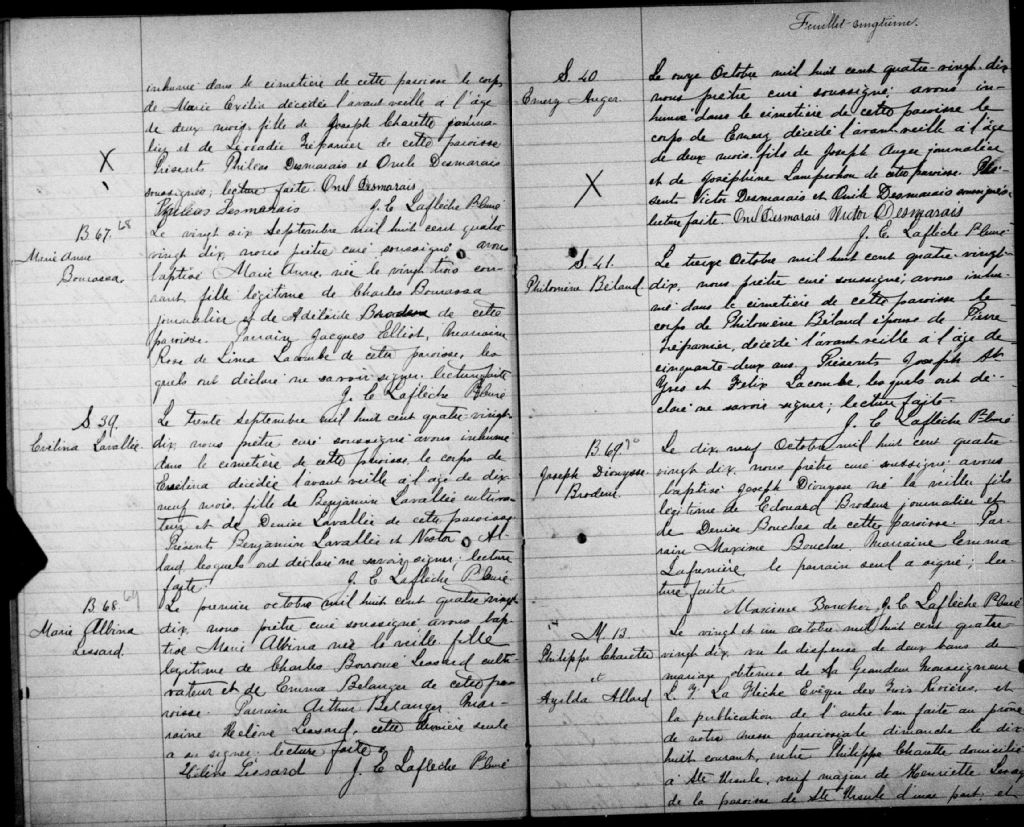 inhumé dans le cimetière de cette paroisse le corps
de Marie decédée l'avant veille à l'âge
de deux mois, fille de Joseph Charette journa-
lier et de Léocadie Trépanier de cette paroisse
Présents Philéas Desmarais et Omile Desmarais
soussignés; lecture faite. Desmarais
Philéas Desmarais J. E. Laflèche Ptre Curé
B 67. 68
Marie Anne
Bourassa.
Le vingt six Septembre mil huit cent quatre
vingt dix, nous prêtre curé soussigné avons
baptisé Marie Anne, née le vingt trois cou-
rant fille légitime de Charles Bourassa
journalier et de Adélaide de cette
paroisse. Parrain Jacques Elliot, Marraine
Rose de Lima Lacombe de cette paroisse, les
quels ont déclaré ne savoir signer. lecture faite
J. E. Laflèche Ptre Curé
S 39.
Evelina Lavallée.
Le trente septembre mil huit cent quatre-vingt-
dix, nous prêtre curé soussigné avons inhumé
dans le cimetière de cette paroisse, le corps de
Evelina décédée l'avant veille à l'âge de dix
neuf mois, fille de Benjamin Lavallée cultiva-
teur et de Denise Lavallée de cette paroisse
Présents Benjamin Lavallée et Nestor Al-
lard, lesquels ont déclaré ne savoir signer; lecture
faite. J. E. Laflèche Ptre Curé
B 68. 69
Marie Albina
Lessard.
Le premier octobre mil huit cent quatre vingt
dix, nous prêtre curé soussigné avons bap-
tisé Marie Albina née la veille fille
légitime de Charles Borromé Lessard culti-
vateur et de Emma Belanger de cette pa-
roisse. Parrain Arthur Belanger Mar-
raine Hélène Lessard, cette dernière seule
a su signer; lecture faite
Hélène Lessard J. E. Laflèche Ptre Curé
Feuillet vingtième.
S. 40
Emery Auger.
Le onze Octobre mil huit cent quatre-vingt-dix
nous prêtre curé soussigné; avons in-
humé dans le cimetière de cette paroisse le
corps de Emery décédé l'avant veille à l'âge
de deux mois. fils de Joseph Auger journalier
et de Joséphine de cette paroisse. Pré-
sent Victor Desmarais et Desmarais soussignés
lecture faite. Desmarais Victor Desmarais
J. E. Laflèche Ptre Curé
S. 41.
Philomène Béland.
Le treize Octobre mil huit cent quatre-vingt-
dix, nous prêtre curé soussigné; avons inhu-
mé dans le cimetière de cette paroisse le
corps de Philomène Béland épouse de Pierre
Trépanier, décédé l'avant veille à l'âge de
cinquante deux ans. Présents Joseph St
Yves et Felix Lacombe, lesquels ont dé-
claré ne savoir signer; lecture faite
J. E. Laflèche Ptre Curé
B 69. 70
Joseph Dionysse
Brodeur.
Le dix neuf Octobre mil huit cent quatre-
vingt dix, nous prêtre curé soussigné; avons
baptisé Joseph Dionysse né la veille, fils
légitime de Edouard Brodeur journalier et
de Denise Boucher de cette paroisse. Par-
rain Maxime Boucher, Marraine Emma
Lafrenière, le parrain seul a signé; lec-
ture faite.
Maxime Boucher, J. E. Laflèche Ptre Curé
M. 13.
Philippe Charette
et
Azilda Allard
Le vingt et un octobre mil huit cent quatre-
vingt dix, vu la dispense de deux bans de
mariage obtenue de Sa Grandeur Monseigneur
L. F. La Flèche Evêque des Trois Rivières, et
la publication de l'autre ban faite au prône
de notre messe paroissiale dimanche le dix
huit courant, entre Philippe Charette domicilié
à Ste Ursule, veuf majeur de Henriette
de la paroisse de Ste Ursule d'une part, et